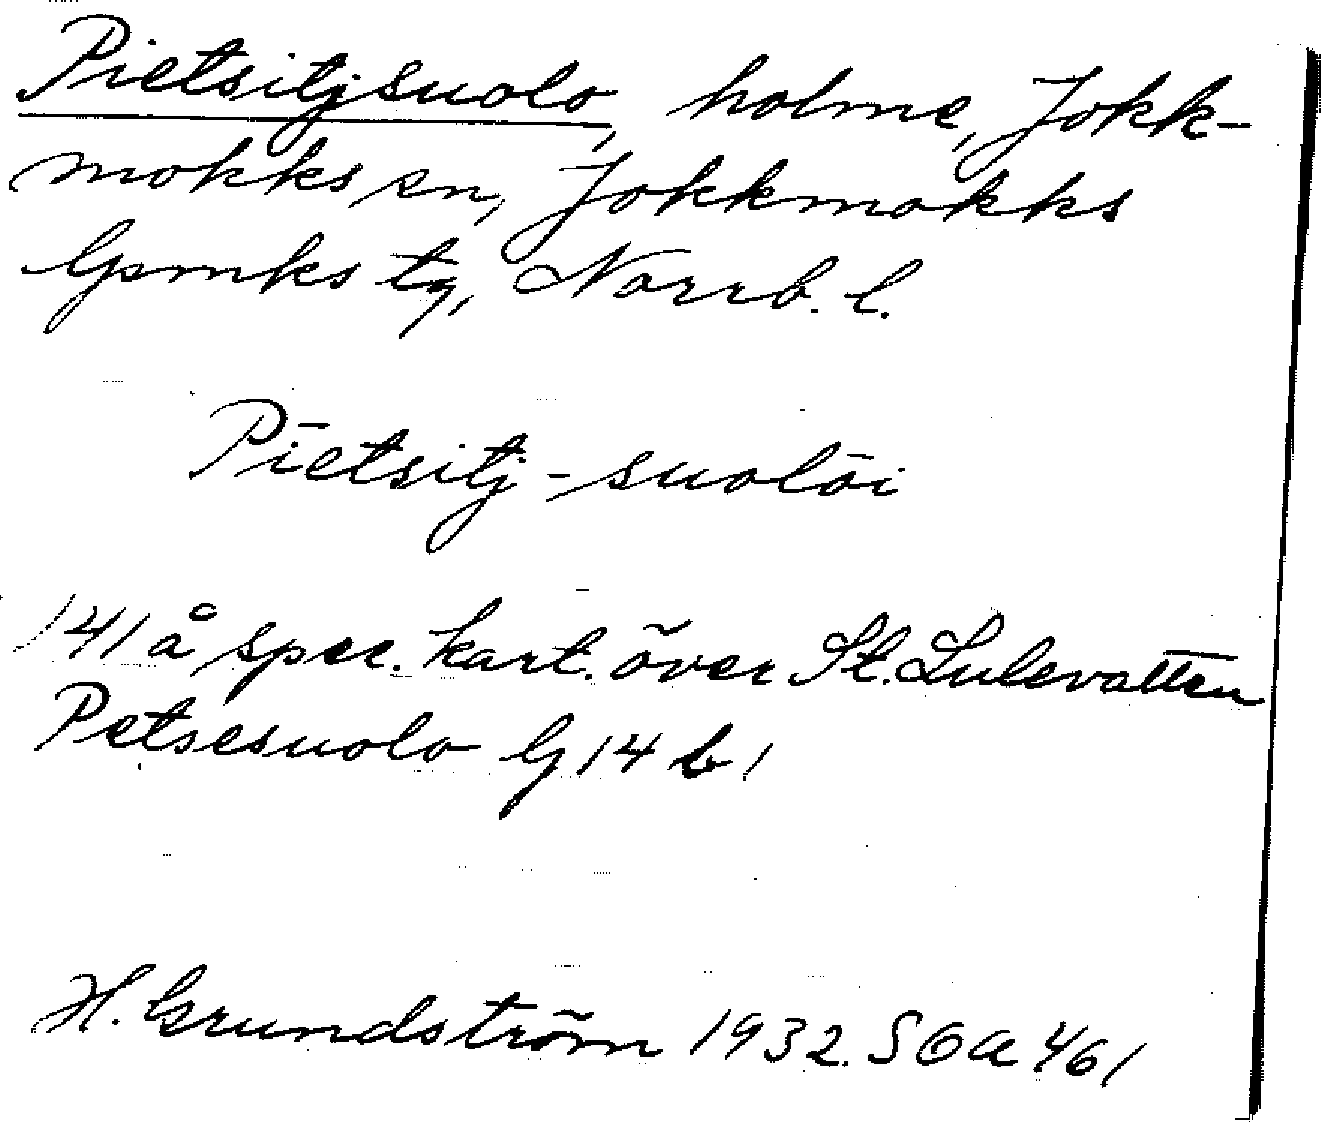 Pietsitjsuolo, holme, Jokk-
mokks sn, Jokkmokks
lpmks tg, Norrb. l.
Pīetsitj-suolōi
141 å spec. kart. över St. Lulevatten
Petsesuolo G 14 b 1
H. Grundström 1932. SOA 461